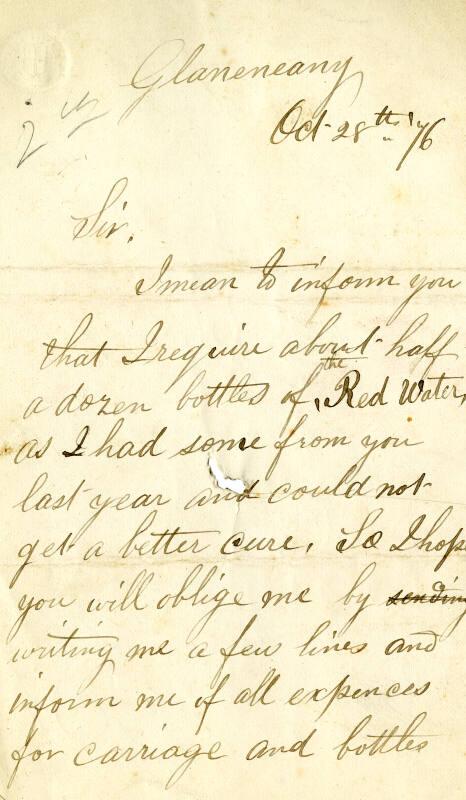 Glaneneany
Oct 28th '76
Sir,
I mean to inform you
that I require about half
a dozen bottles of the Red Water,
as I had some from you
last year and could not
get a better cure, So I hope
you will oblige me by sending
writing me a few lines and
inform me if all expences
for carriage and bottles